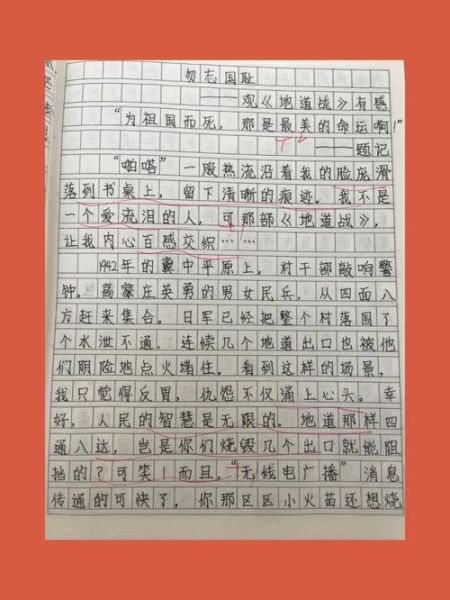 勿忘国耻
——观《地道战》有感
“为祖国而死，那是最美的命运啊！”
——题记
“啪嗒”一股热流沿着我的脸庞滑
落到书桌上，留下清晰的痕迹。我不是
一个爱流泪的人，可那部《地道战》，
让我内心百感交织……
1942年的冀中平原上，村干部敲响警
钟。高家庄英勇的男女民兵，从四面八
方赶来集合。日军已经把整个村落围了
个水泄不通，连续几个地道出口也被他
们阴险地点火堵住。看到这样的场景，
我只觉得反胃，仇怨不仅涌上心头。幸
好，人民的智慧是无限的，地道那样四
通八达，岂是你们烧毁几个出口就能阻
挡的？可笑！而且，“无线电广播”消息
传通的可快了，你那区区小火苗还想烧